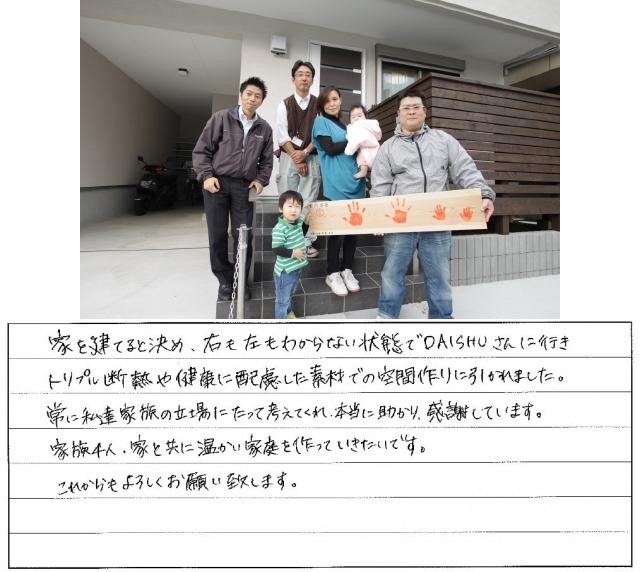 家を建てると決め、右も左もわからない状態でDAISHUさんに行き
トリプル断熱や健康に配慮した素材での空間作りに引かれました。
常に私達家族の立場にたって考えてくれ、本当に助かり、感謝しています。
家族4人、家と共に温かい家庭を作っていきたいです。
これからもよろしくお願い致します。